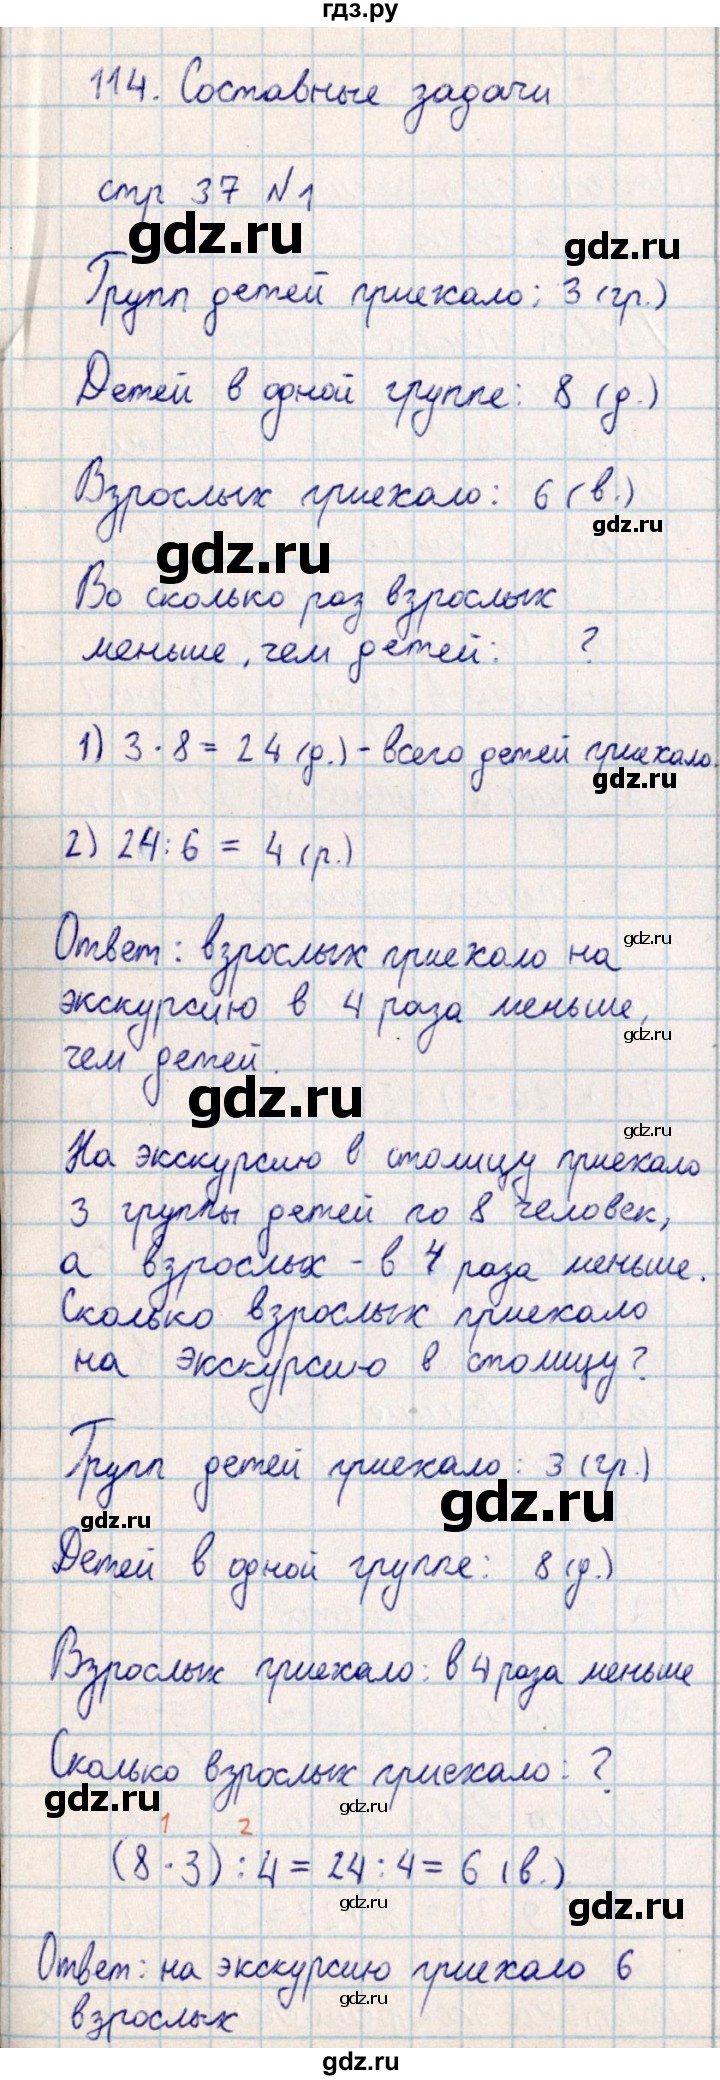 гдз.ру
114. Составные задачи
стр 37 №1
gdz.ru
gdz.ru
Групп детей приехало: 3 (гр.)
Детей в одной группе: 8 (д.)
Взрослых приехало: 6 (в.)
gdz.ru
gdz.ru
Во сколько раз взрослых
меньше, чем детей: ?
1) 3 · 8 = 24 (д.) - всего детей приехало.
gdz.ru
2) 24 : 6 = 4 (р.)
Ответ: взрослых приехало на
gdz.ru
экскурсию в 4 раза меньше,
gdz.ru
чем детей.
gdz.ru
gdz.ru
На экскурсию в столицу приехало
3 группы детей по 8 человек,
а взрослых - в 4 раза меньше.
Сколько взрослых приехало
на экскурсию в столицу?
Групп детей приехало: 3 (гр.)
gdz.ru
gdz.ru
Детей в одной группе: 8 (д.)
Взрослых приехало: в 4 раза меньше
Сколько взрослых приехало: ?
gdz.ru
gdz.ru
1 2
(8 · 3) : 4 = 24 : 4 = 6 (в.)
gdz.ru
gdz.ru
Ответ: на экскурсию приехало 6
gdz.ru
взрослых
gdz.ru